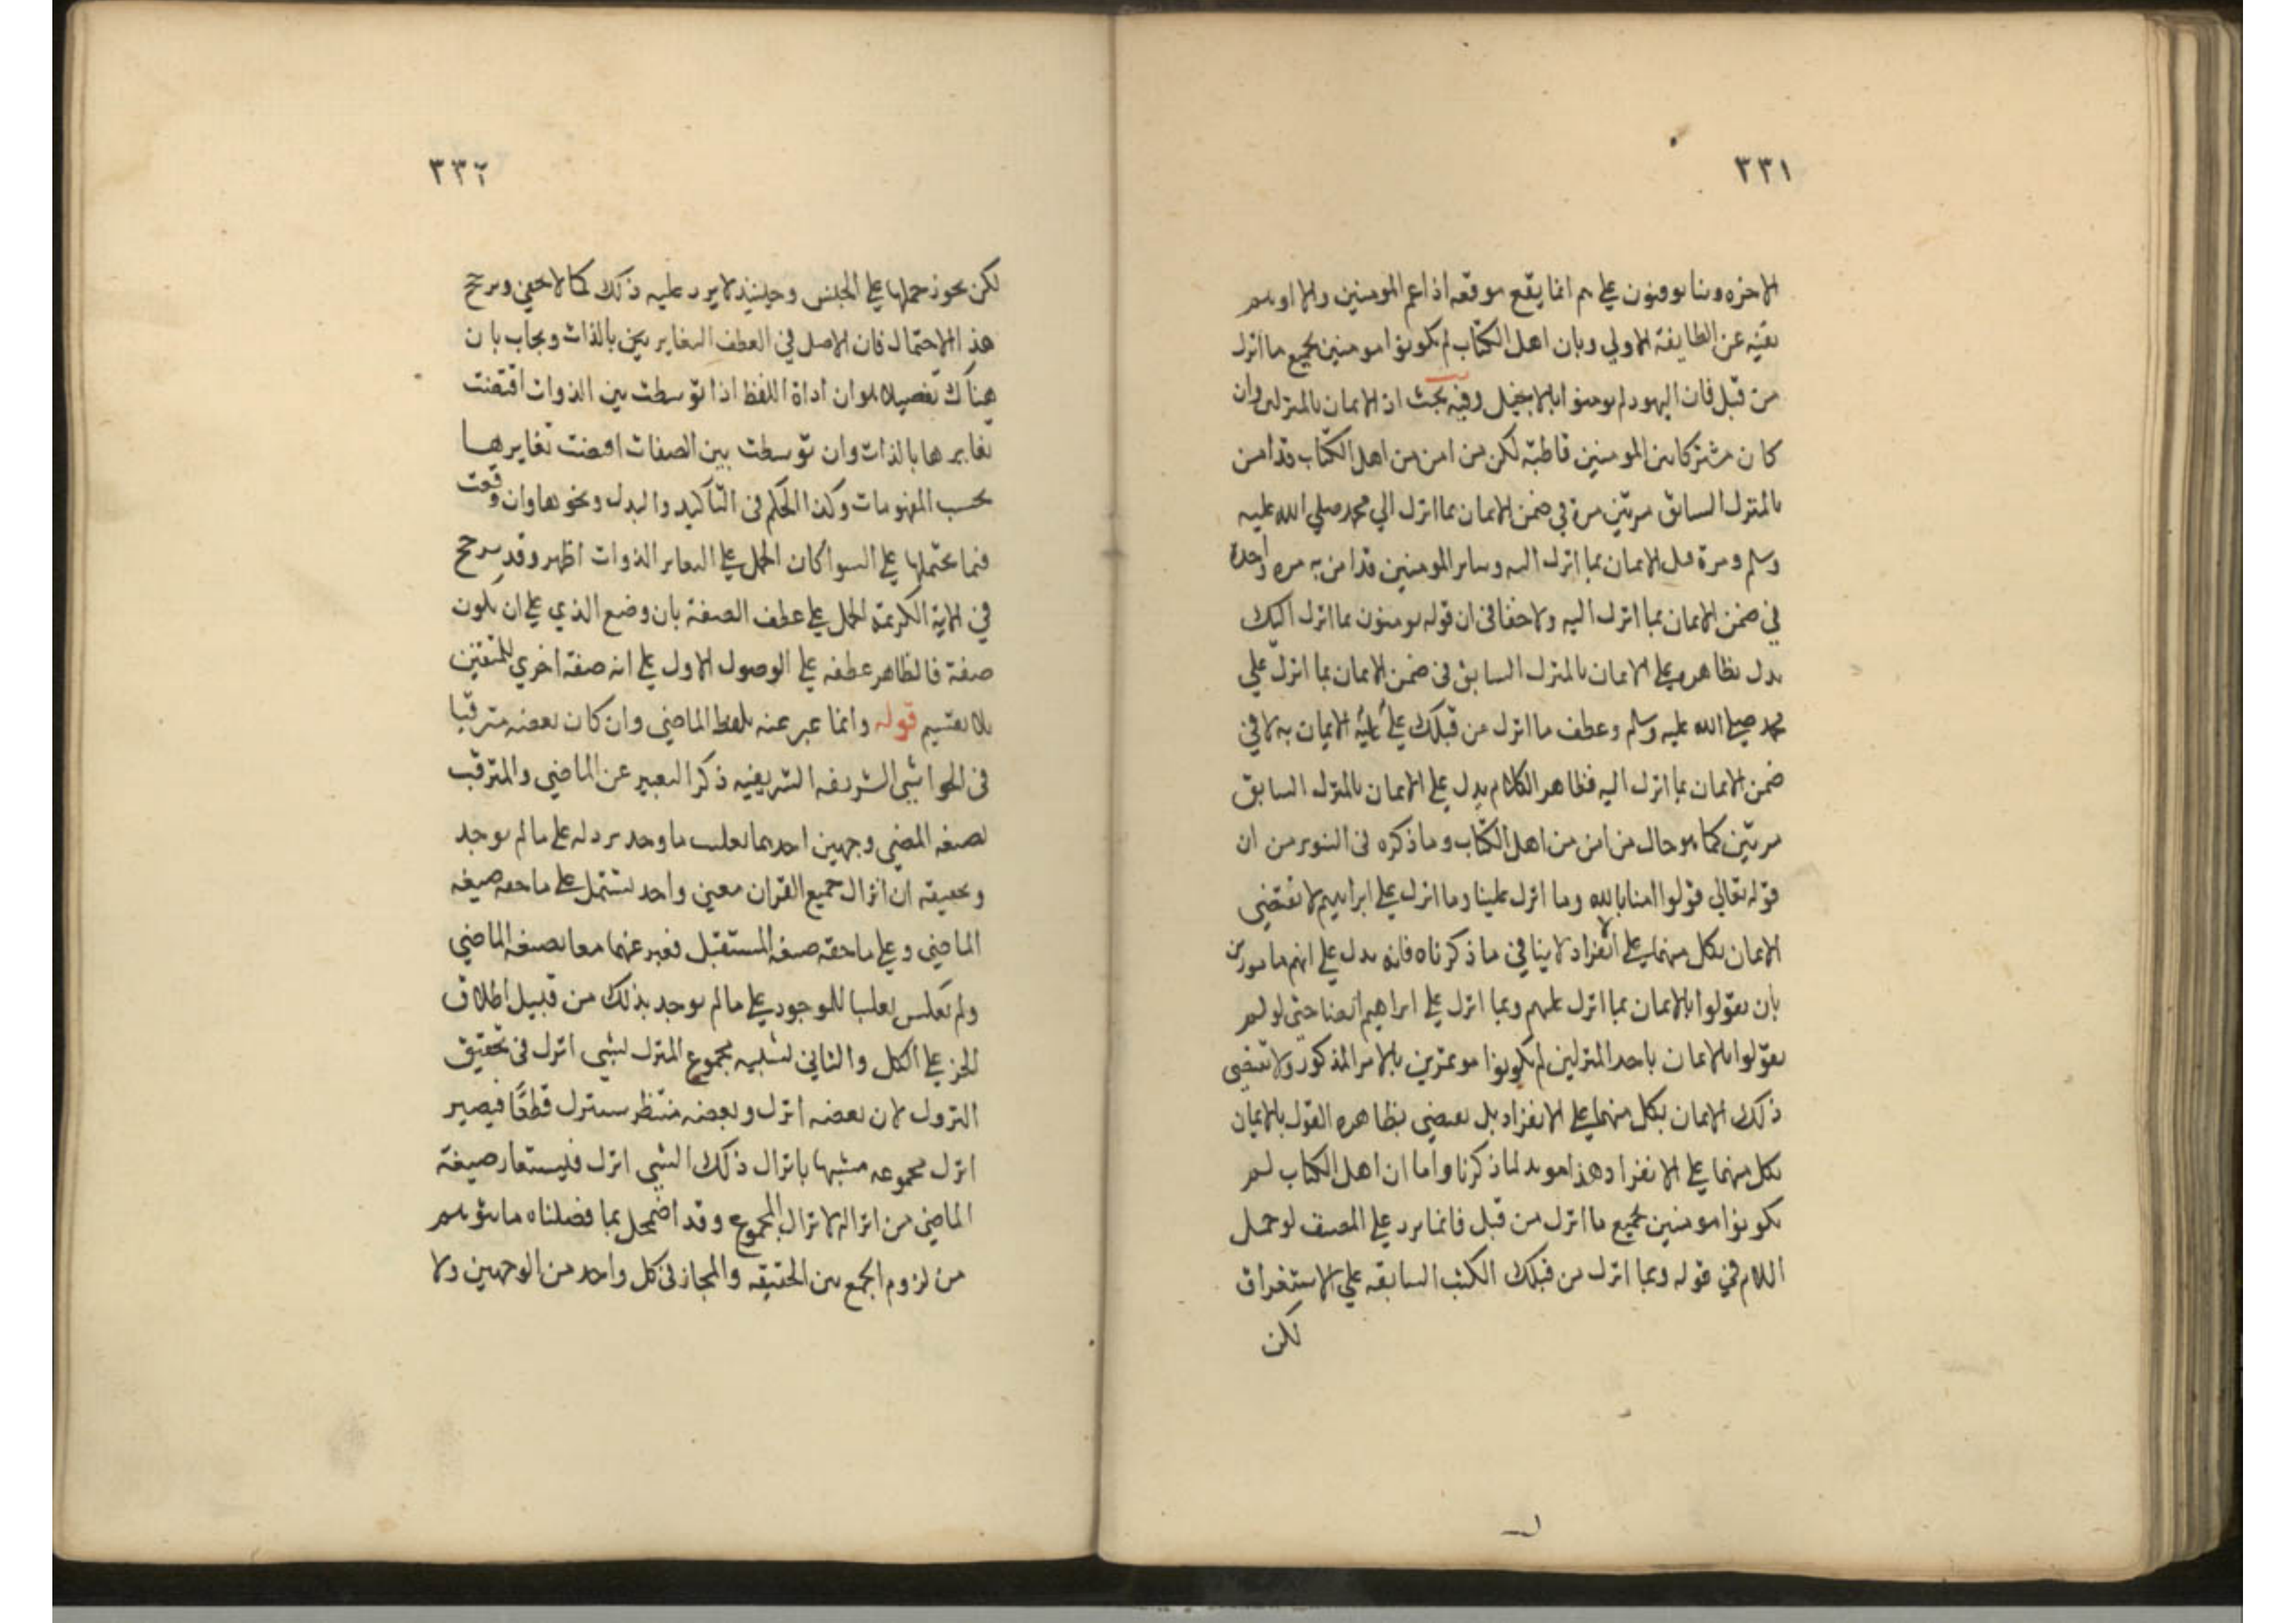 ٣٣١
الاخرة وبنا يوقنون على هم انما يقع موقعه اذا عم المومنين والا اوهم
نفيه عن الطايفة الاولي وبان اهل الكتاب لم يكونوا مومنين بجميع ما انزل
من قبل فان اليهود لم يومنوا بالانجيل وفيه بحث اذ الايمان بالمنزلين وان
كان مشتركا بين المومنين قاطبة لكن من امن من اهل الكتاب قد امن
بالمنزل السابق مرتين مرة في ضمن الايمان بما انزل الي محمد صلي الله عليه
وسلم ومرة قبل الايمان بما انزل اليه وساير المومنين قد امن به مرة واحدة
في ضمن الايمان بما انزل اليه ولا خفا في ان قوله يومنون بما انزل اليك
يدل بظاهره على الايمان بالمنزل السابق في ضمن الايمان بما انزل علي
محمد صلى الله عليه وسلم وعطف ما انزل من قبلك علي عليه الايمان به لا في
ضمن الايمان بما انزل اليه فظاهر الكلام يدل على الايمان بالمنزل السابق
مرتين كما هو حال من امن من اهل الكتاب وما ذكره في التنوير من ان
قوله تعالي قولوا امنا بالله وما انزل علينا وما انزل على ابراهيم لا يقتضي
الايمان بكل منهما على الانفراد لا ينافي ما ذكرناه فانه يدل على انهم مامورين
بان يقولوا بالايمان بما انزل عليهم وبما انزل على ابراهيم ايضا حتى لو لم
يقولوا بالايمان باحد المنزلين لم يكونوا موتمرين بالامر المذكور ولا يقتضى
ذلك الايمان بكل منهما على الانفراد بل يقتضي بظاهره القول بالايمان
بكل منهما على الانفراد وهذا مويد لما ذكرنا واما ان اهل الكتاب لم
يكونوا مومنين بجميع ما انزل من قبل فانما يرد على المصنف لو حمل
اللام في قوله وبما انزل من قبلك الكتب السابقه على الاستغراق
لكن
٣٣٢
لكن يجوز حملها على الجنس وحينيذ لا يرد عليه ذلك كما لا يخفي ويرجح
هذا الاحتمال فان الاصل في العطف التغاير بين بالذات ويجاب بان
هناك تفصيلا هو ان اداة اللفظ اذا توسطت بين الذوات اقتضت
تغايرها بالذات وان توسطت بين الصفات اقتضت تغايرها
بحسب المفهومات وكذا الحكم في التاكيد والبدل ونحوها وان وقعت
فيما يحتملها على السوا كان الحمل على التغاير الذوات اظهر وقد يرجح
في الاية الكريمة الحمل على عطف الصفة بان وضع الذي على ان يكون
صفة فالظاهر عطفه على الوصول الاول على انه صفة اخري للمتقين
بلا تقسيم قوله وانما عبر عنه بلفظ الماضي وان كان بعضه مترقبا
في الحواشي الشريفه الشريفيه ذكر التعبير عن الماضي والمترقب
بصيغه المضي وجهين احدهما تغليب ما وجد نزوله على ما لم يوجد
وتحقيقه ان انزال جميع القران معني واحد يشتمل على ما حقه صيغه
الماضي وعلى ما حقه صيغه المستقبل فعبر عنهما معا بصيغه الماضي
ولم يعكس تغليبا للموجود على ما لم يوجد بذلك من قبيل اطلاق
الجز على الكل والثاني تشبيه مجموع المنزل بشي انزل في تحقيق
النزول لان بعضه انزل وبعضه منتظر سينزل قطعًا فيصير
انزل مجموعه مشبها بانزال ذلك الشي انزل فليستعار صيغة
الماضي من انزاله لانزال المجموع وقد اضمحل بما فصلناه ما يتوهم
من لزوم الجمع بين الحقيقه والمجاز في كل واحد من الوجهين ولا